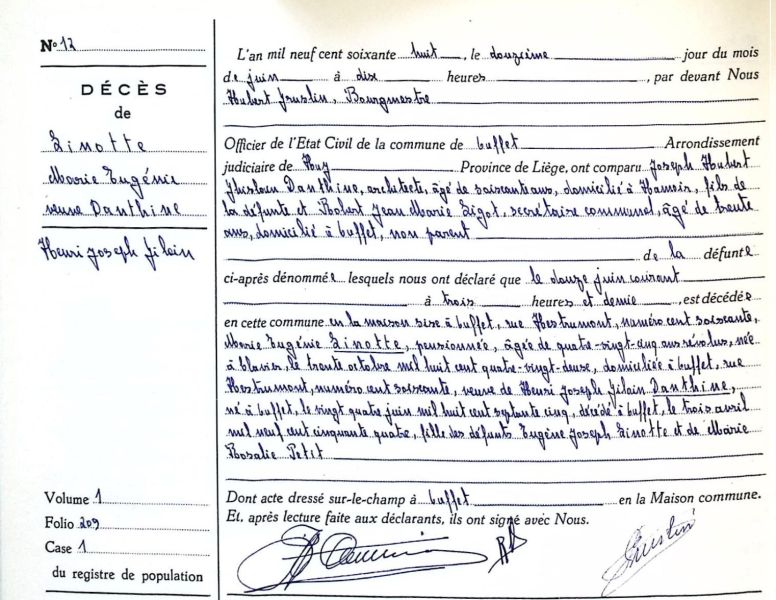 No 12
DÉCÈS
de
Linotte
Marie Eugénie
veuve Danthine
Henri Joseph Jilain
Volume 1
Folio 209
Case 1
du registre de population
L'an mil neuf cent soixante huit, le douzième jour du mois
de juin à dix heures, par devant Nous
Hubert, Bourgmestre
Officier de l'Etat Civil de la commune de Ouffet Arrondissement
judiciaire de Huy Province de Liège, ont comparu Joseph Hubert
Ghislain Danthine, architecte, âgé de soixante ans, domicilié à Hamoir, fils de
la défunte et Robert Jean Marie Ligot, secrétaire communal, âgé de trente
ans, domicilié à Ouffet, non parent
de la défunte
ci-après dénommée lesquels nous ont déclaré que le douze juin courant
à trois heures et demie, est décédée
en cette commune en la maison sise à Ouffet, rue Hestrumont, numéro cent soixante,
Marie Eugénie Linotte, pensionnée, âgée de quatre-vingt-cinq ans révolus, née
à Clavier, le trente octobre mil huit cent quatre-vingt-deux, domiciliée à Ouffet, rue
Hestrumont, numéro cent soixante, veuve de Henri Joseph Jilain Danthine,
né à Ouffet, le vingt quatre juin mil huit cent septante cinq, décédé à Ouffet, le trois avril
mil neuf cent cinquante quatre, fille des défunts Eugène Joseph Linotte et de Marie
Rosalie Petit
Dont acte dressé sur-le-champ à Ouffet en la Maison commune.
Et, après lecture faite aux déclarants, ils ont signé avec Nous.